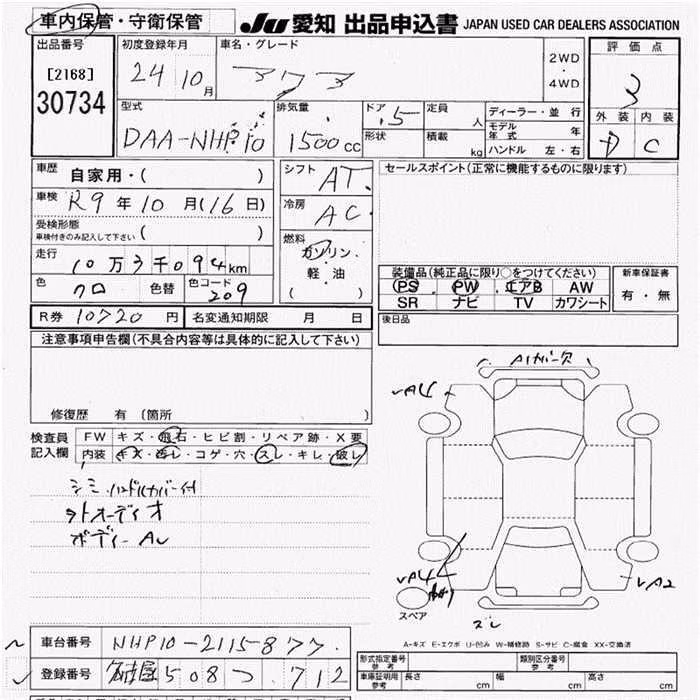 車内保管・守衛保管
JU 愛知 出品申込書 JAPAN USED CAR DEALERS ASSOCIATION
出品番号
[2168]
30734
初度登録年月
24 10月
車名・グレード
アクア
2WD
・
4WD
評価点
3
外装 内装
D C
型式
DAA-NHP10
排気量
1500cc
ドア
.5
形状
定員
人
積載
kg
ディーラー・並行
モデル年式 年
ハンドル 左・右
車歴
自家用・( )
車検 R9年10月(16日)
受検形態
車検付きのみ記入して下さい ( )
走行
10万3千094km
色
クロ
色替
色コード
209
シフト
AT.
冷房
AC
燃料
ガソリン・
軽・油
( )
セールスポイント(正常に機能するものに限ります)
装備品(純正品に限り○をつけてください)
PS PW エアB AW
SR ナビ TV カワシート
新車保証書
有・無
後日品
R券 10720円
名変通知期限 月 日
注意事項申告欄(不具合内容等は具体的に記入して下さい)
修復歴 有 (箇所 )
検査員記入欄
FW キズ・飛石・ヒビ割・リペア跡・X要
内装 キズ・汚レ・コゲ・穴・スレ・キレ・破レ
シミ・ハンドルカバー付
外オーディオ
ボディーAU
A1カバー欠
A4
A4
A2
スペア
ズレ
A-キズ E-エクボ U-凹み W-補修跡 S-サビ C-腐食 XX-交換済
車台番号 NHP10-2115877.
登録番号 名古屋508つ.712
形式指定番号
参考
類別区分番号
参考
車庫証明用
参考
長さ cm
幅 cm
高さ cm